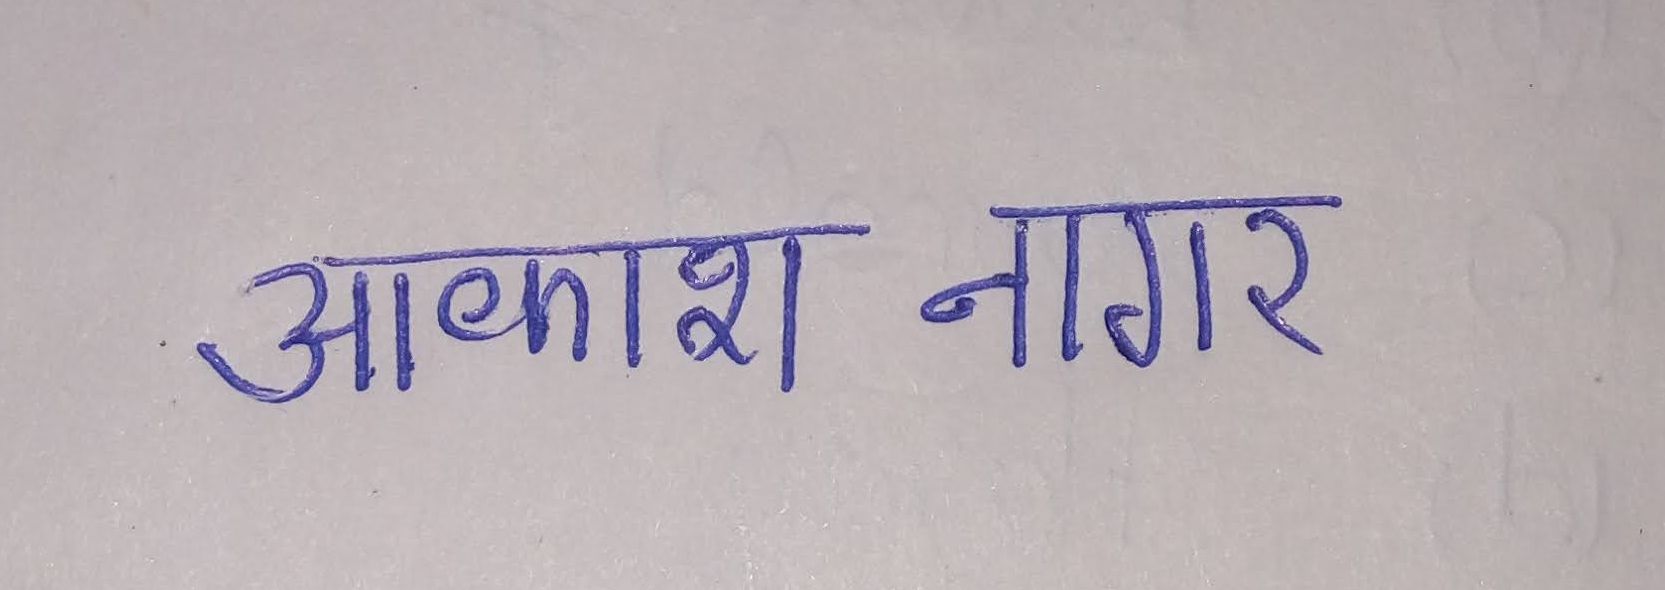 आकाश नागर